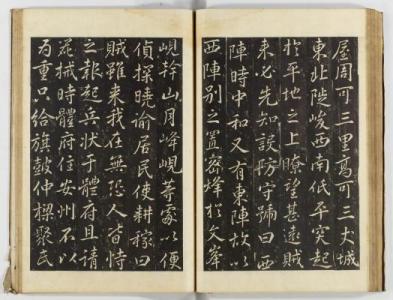 屋周可三里高可三丈城
東北陡峻西南低平突起
於平地之上瞭望甚遠賊
來必先知設防守號曰西
陣時中和又有東陣故以
西陣別之置密烽於文峯
峴幹山月峰峴等處以便
偵探曉諭居民使耕稼曰
賊雖來我在無恐人皆恃
之報起兵狀于體府且請
器械時體府住安州不以
為重只給旗鼓仲樑聚民